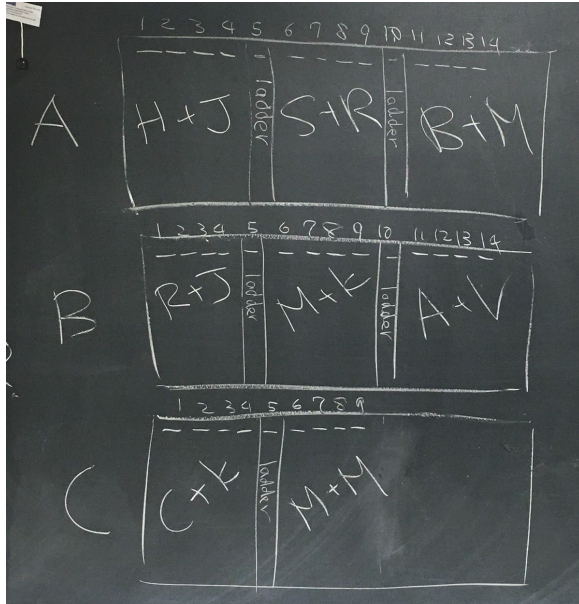 1 2 3 4 5 6 7 8 9 10 11 12 13 14
A H+J ladder S+R ladder B+M
1 2 3 4 5 6 7 8 9 10 11 12 13 14
B R+J ladder M+K ladder A+V
1 2 3 4 5 6 7 8 9
C C+K ladder M+M